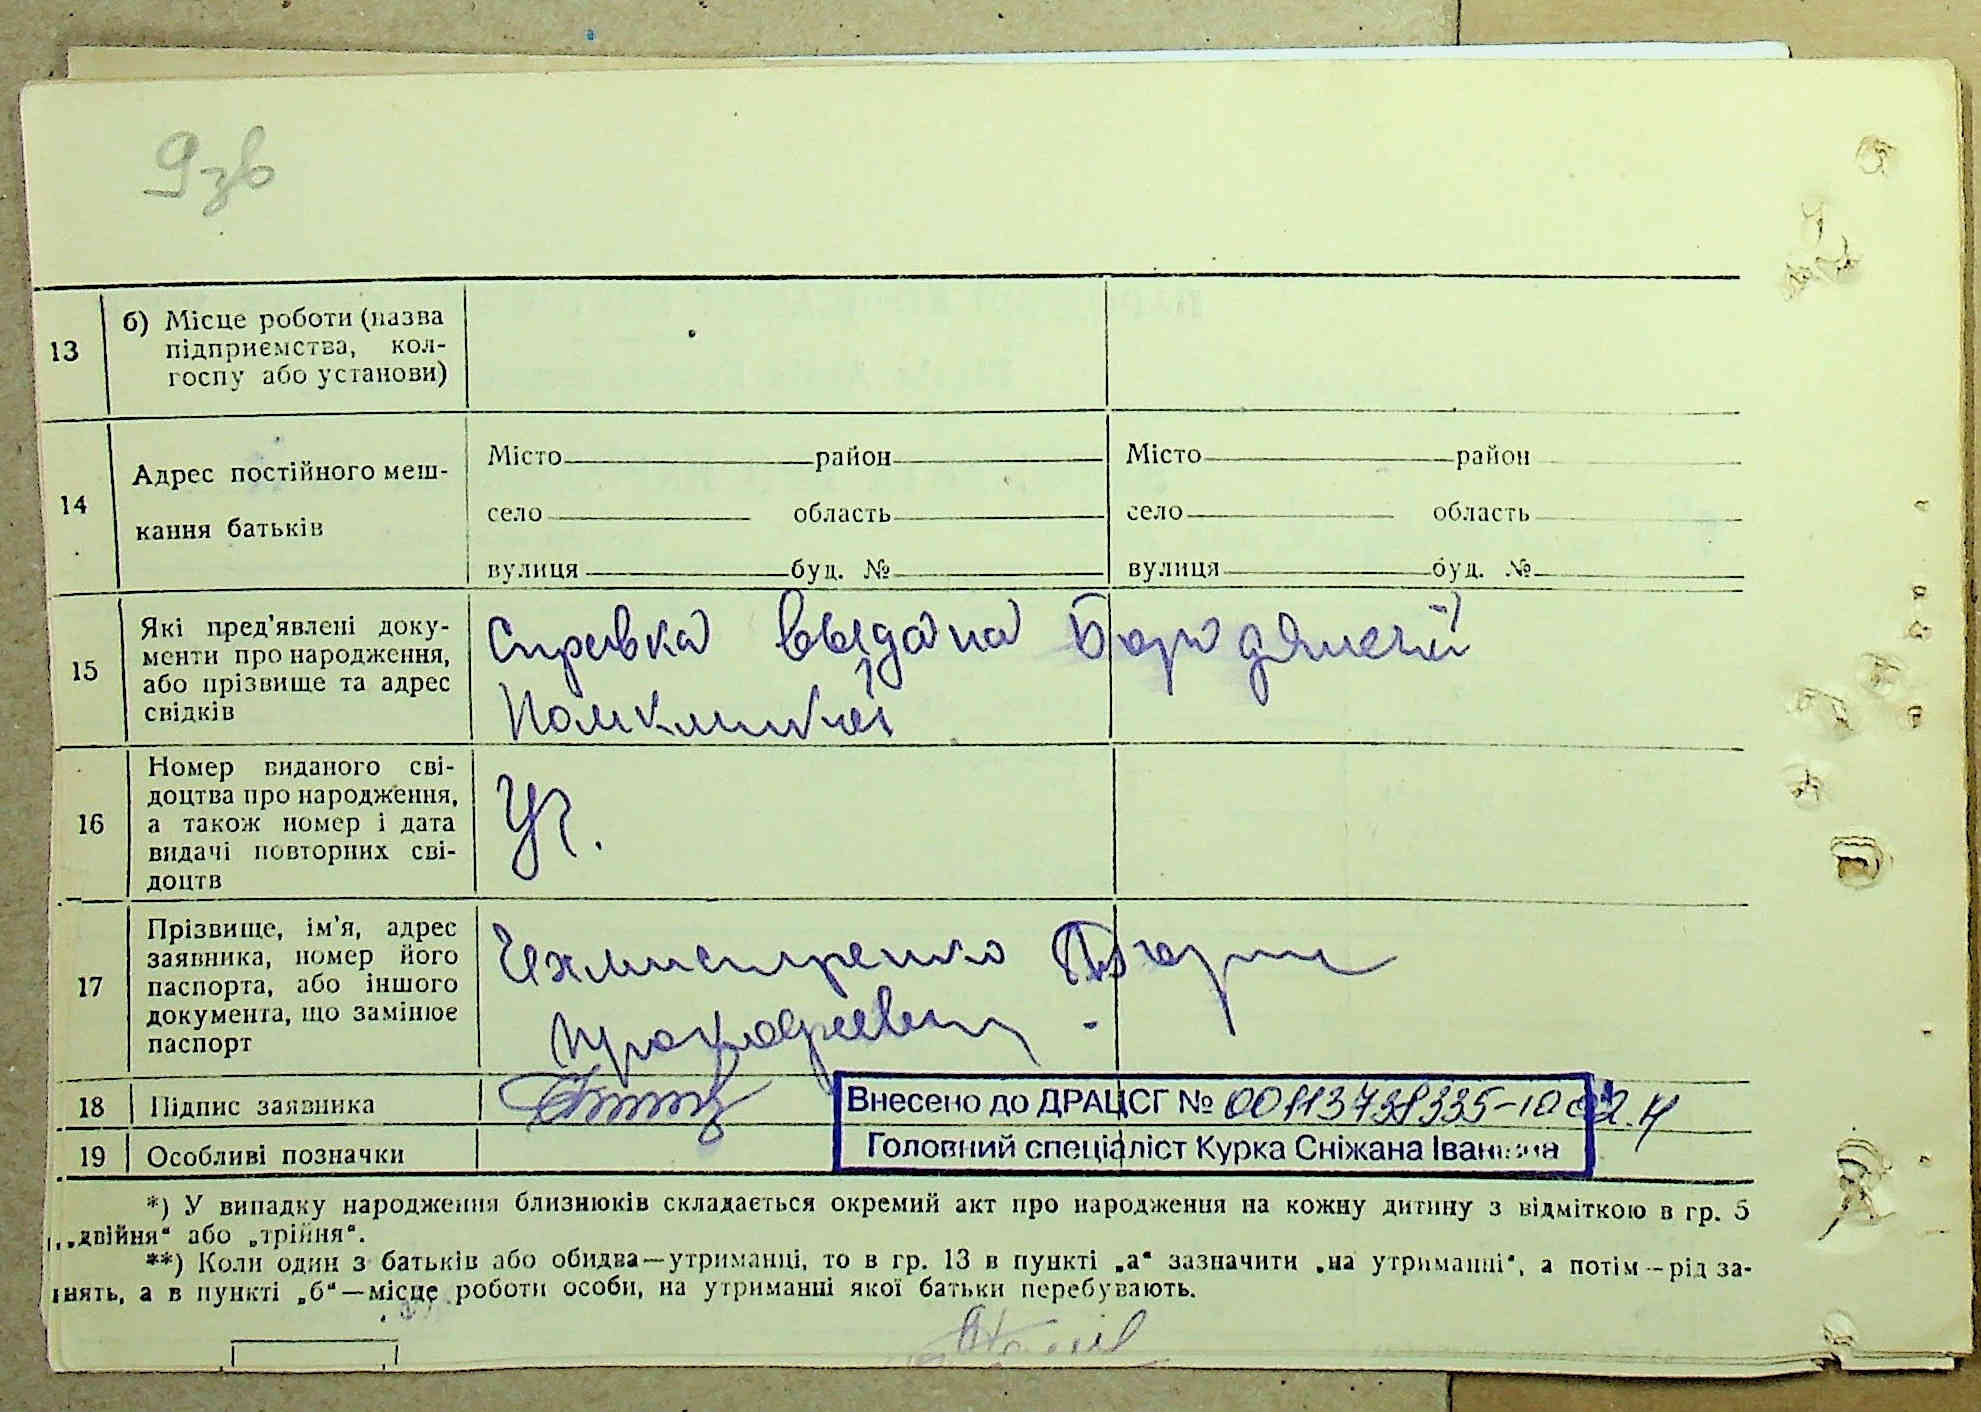 9зв
13
б) Місце роботи (назва
підприємства, кол-
госпу або установи)
14
Адрес постійного меш-
кання батьків
Місто район
село область
вулиця буд. №
Місто район
село область
вулиця буд. №
15
Які пред'явлені доку-
менти про народження,
або прізвище та адрес
свідків
Справка выдана Бородянской
Поликлиникой
16
Номер виданого сві-
доцтва про народження,
а також номер і дата
видачі повторних сві-
доцтв
17
Прізвище, ім'я, адрес
заявника, номер його
паспорта, або іншого
документа, що замінює
паспорт
Чехмистренко
18 Підпис заявника
Внесено до ДРАЦСГ №
Головний спеціаліст Курка Сніжана Іванівна
19 Особливі позначки
*) У випадку народження близнюків складається окремий акт про народження на кожну дитину з відміткою в гр. 5
„двійня“ або „трійня“.
**) Коли один з батьків або обидва—утриманці, то в гр. 13 в пункті „а“ зазначити „на утриманні“, а потім—рід за-
нять, а в пункті „б“—місце роботи особи, на утриманні якої батьки перебувають.